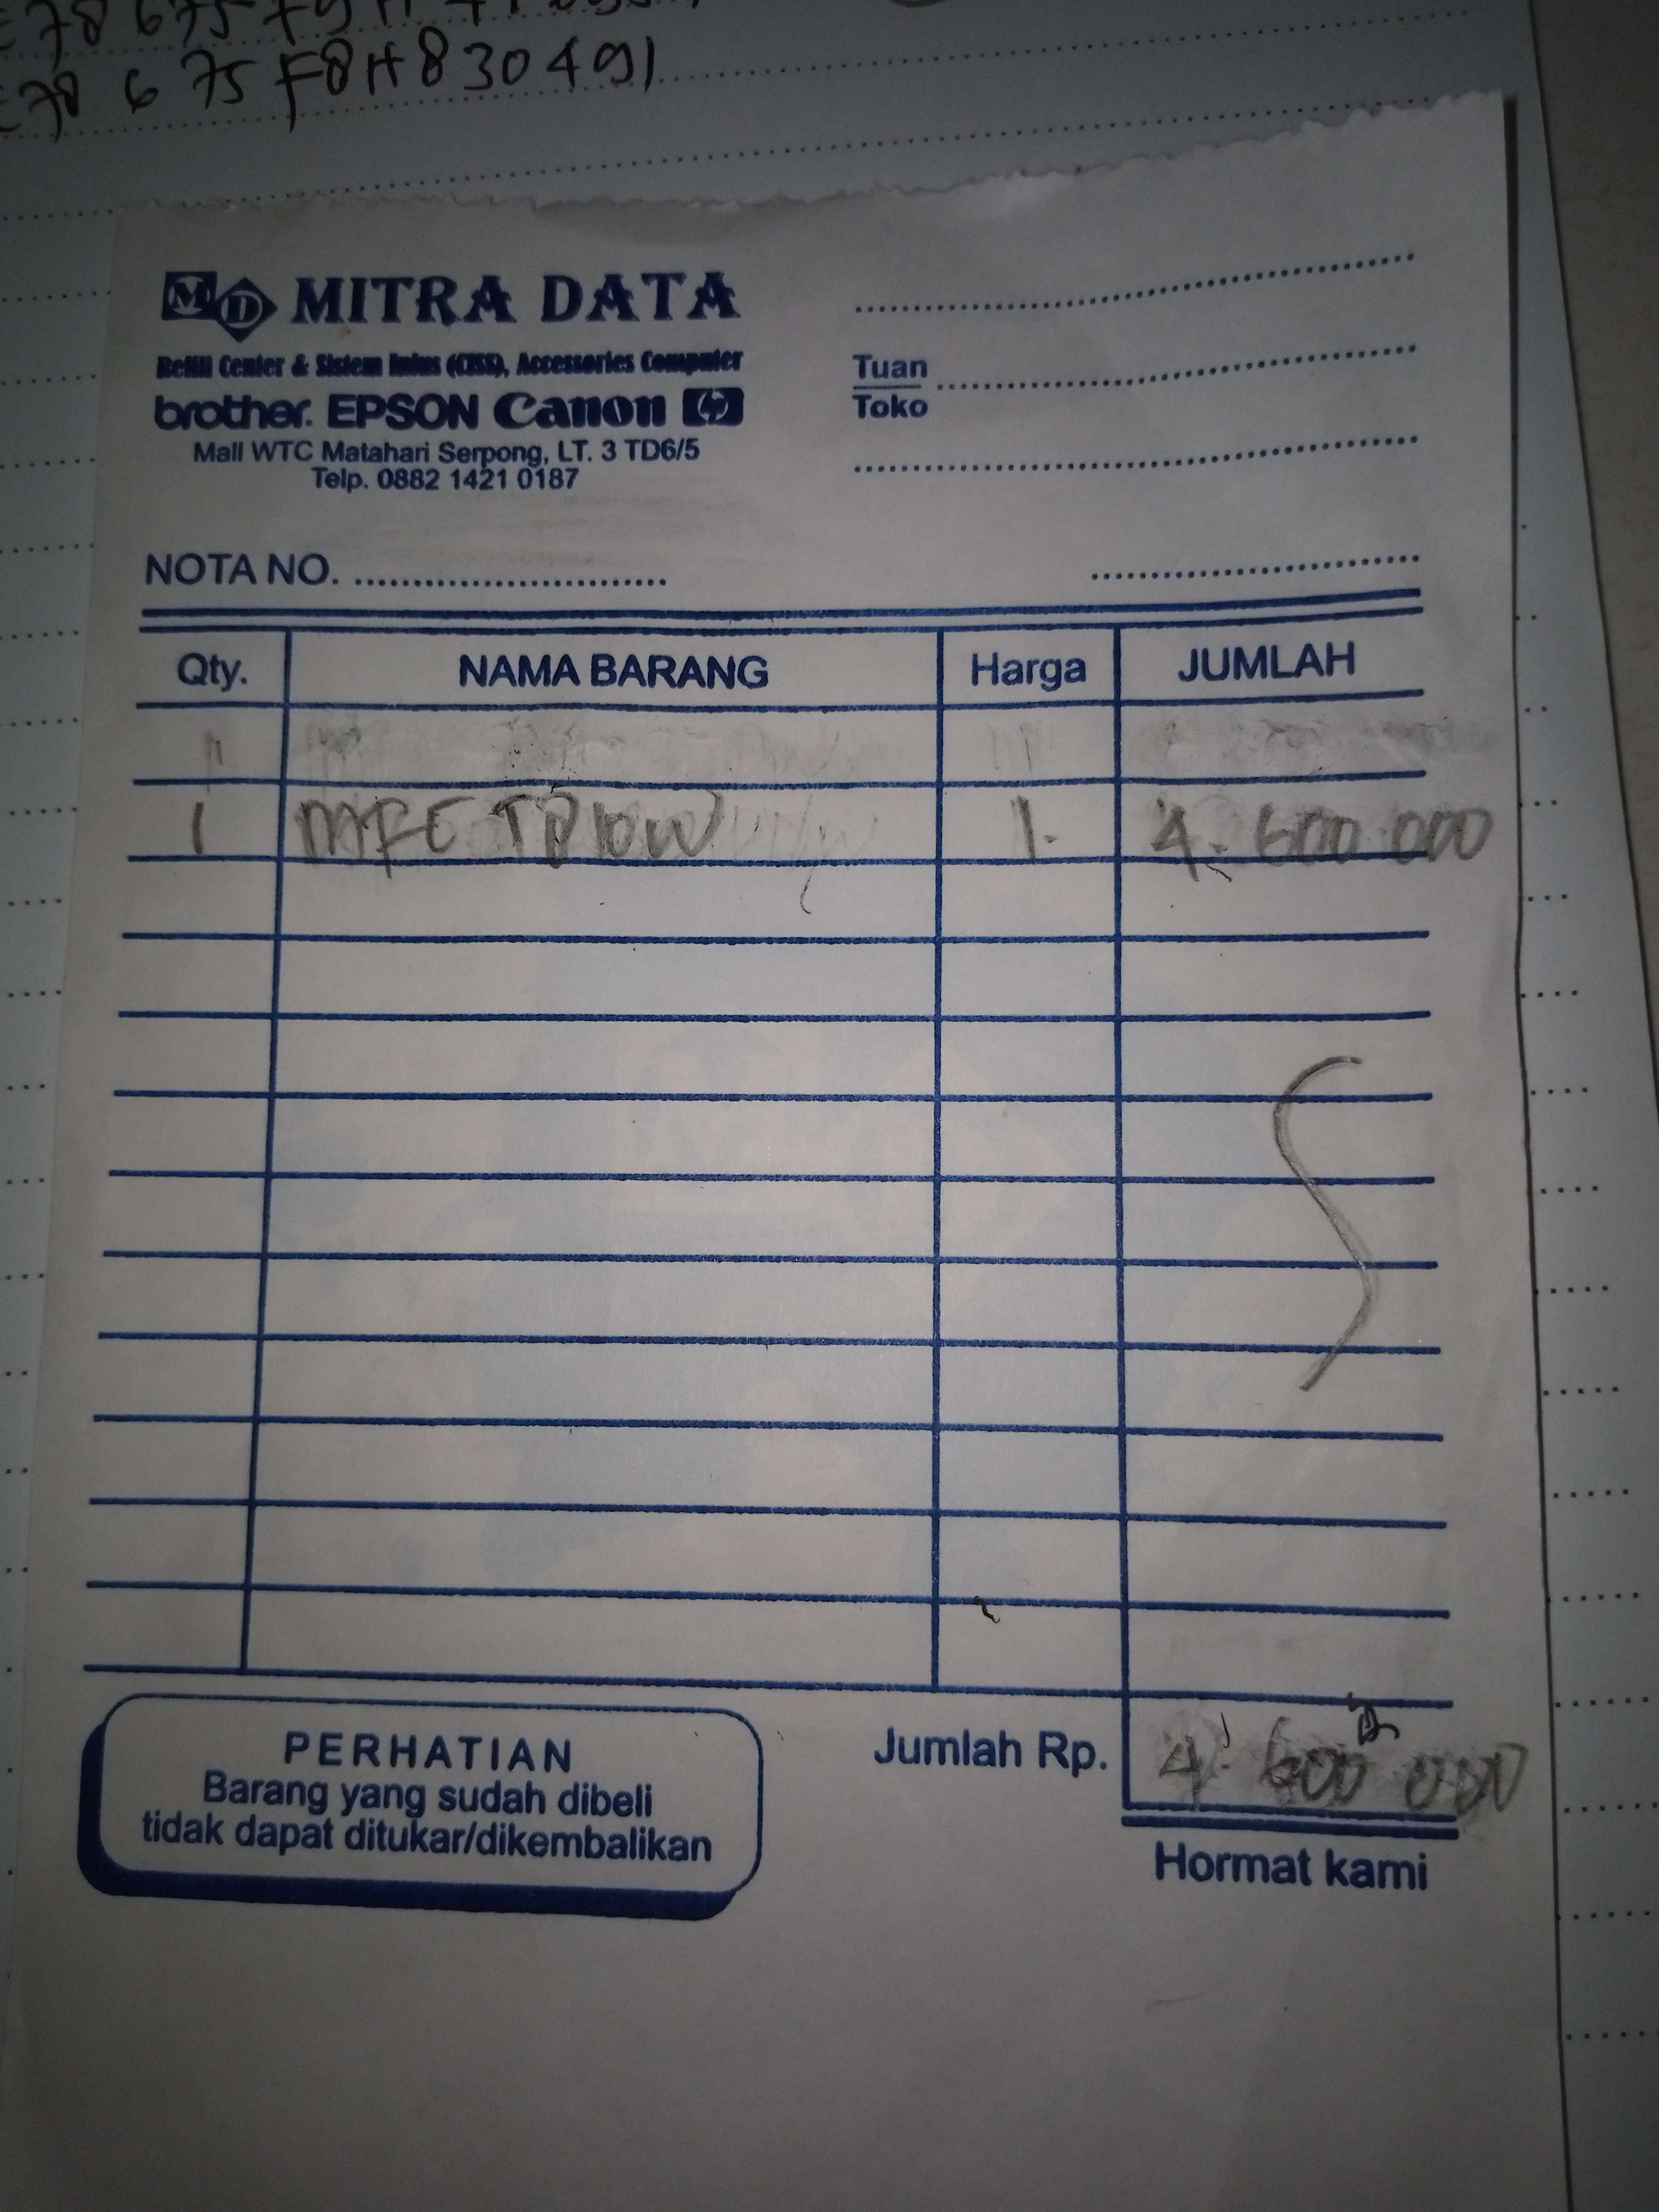 78 675F8H830491
MD MITRA DATA
Refill Center & Sistem Infus (CISS), Accessories Computer
brother. EPSON Canon hp
Mall WTC Matahari Serpong, LT. 3 TD6/5
Telp. 0882 1421 0187
Tuan
Toko
NOTA NO.
Qty. NAMA BARANG Harga JUMLAH
1 MFC T810W 1. 4.600 000
PERHATIAN
Barang yang sudah dibeli
tidak dapat ditukar/dikembalikan
Jumlah Rp. 4.600 000
Hormat kami